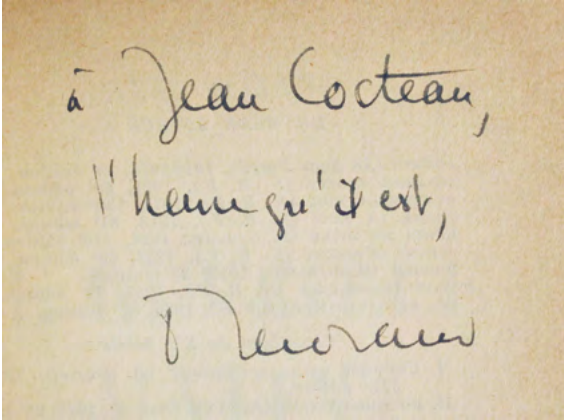 à Jean Cocteau,
l'heure qu'il est,
P Morand